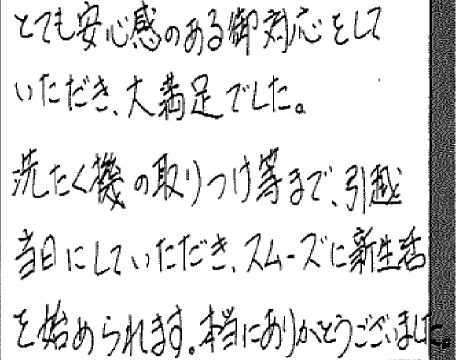 とても安心感のある御対応をして
いただき、大満足でした。
洗たく機の取りつけ等まで、引越
当日にしていただき、スムーズに新生活
を始められます。本当にありがとうございました。